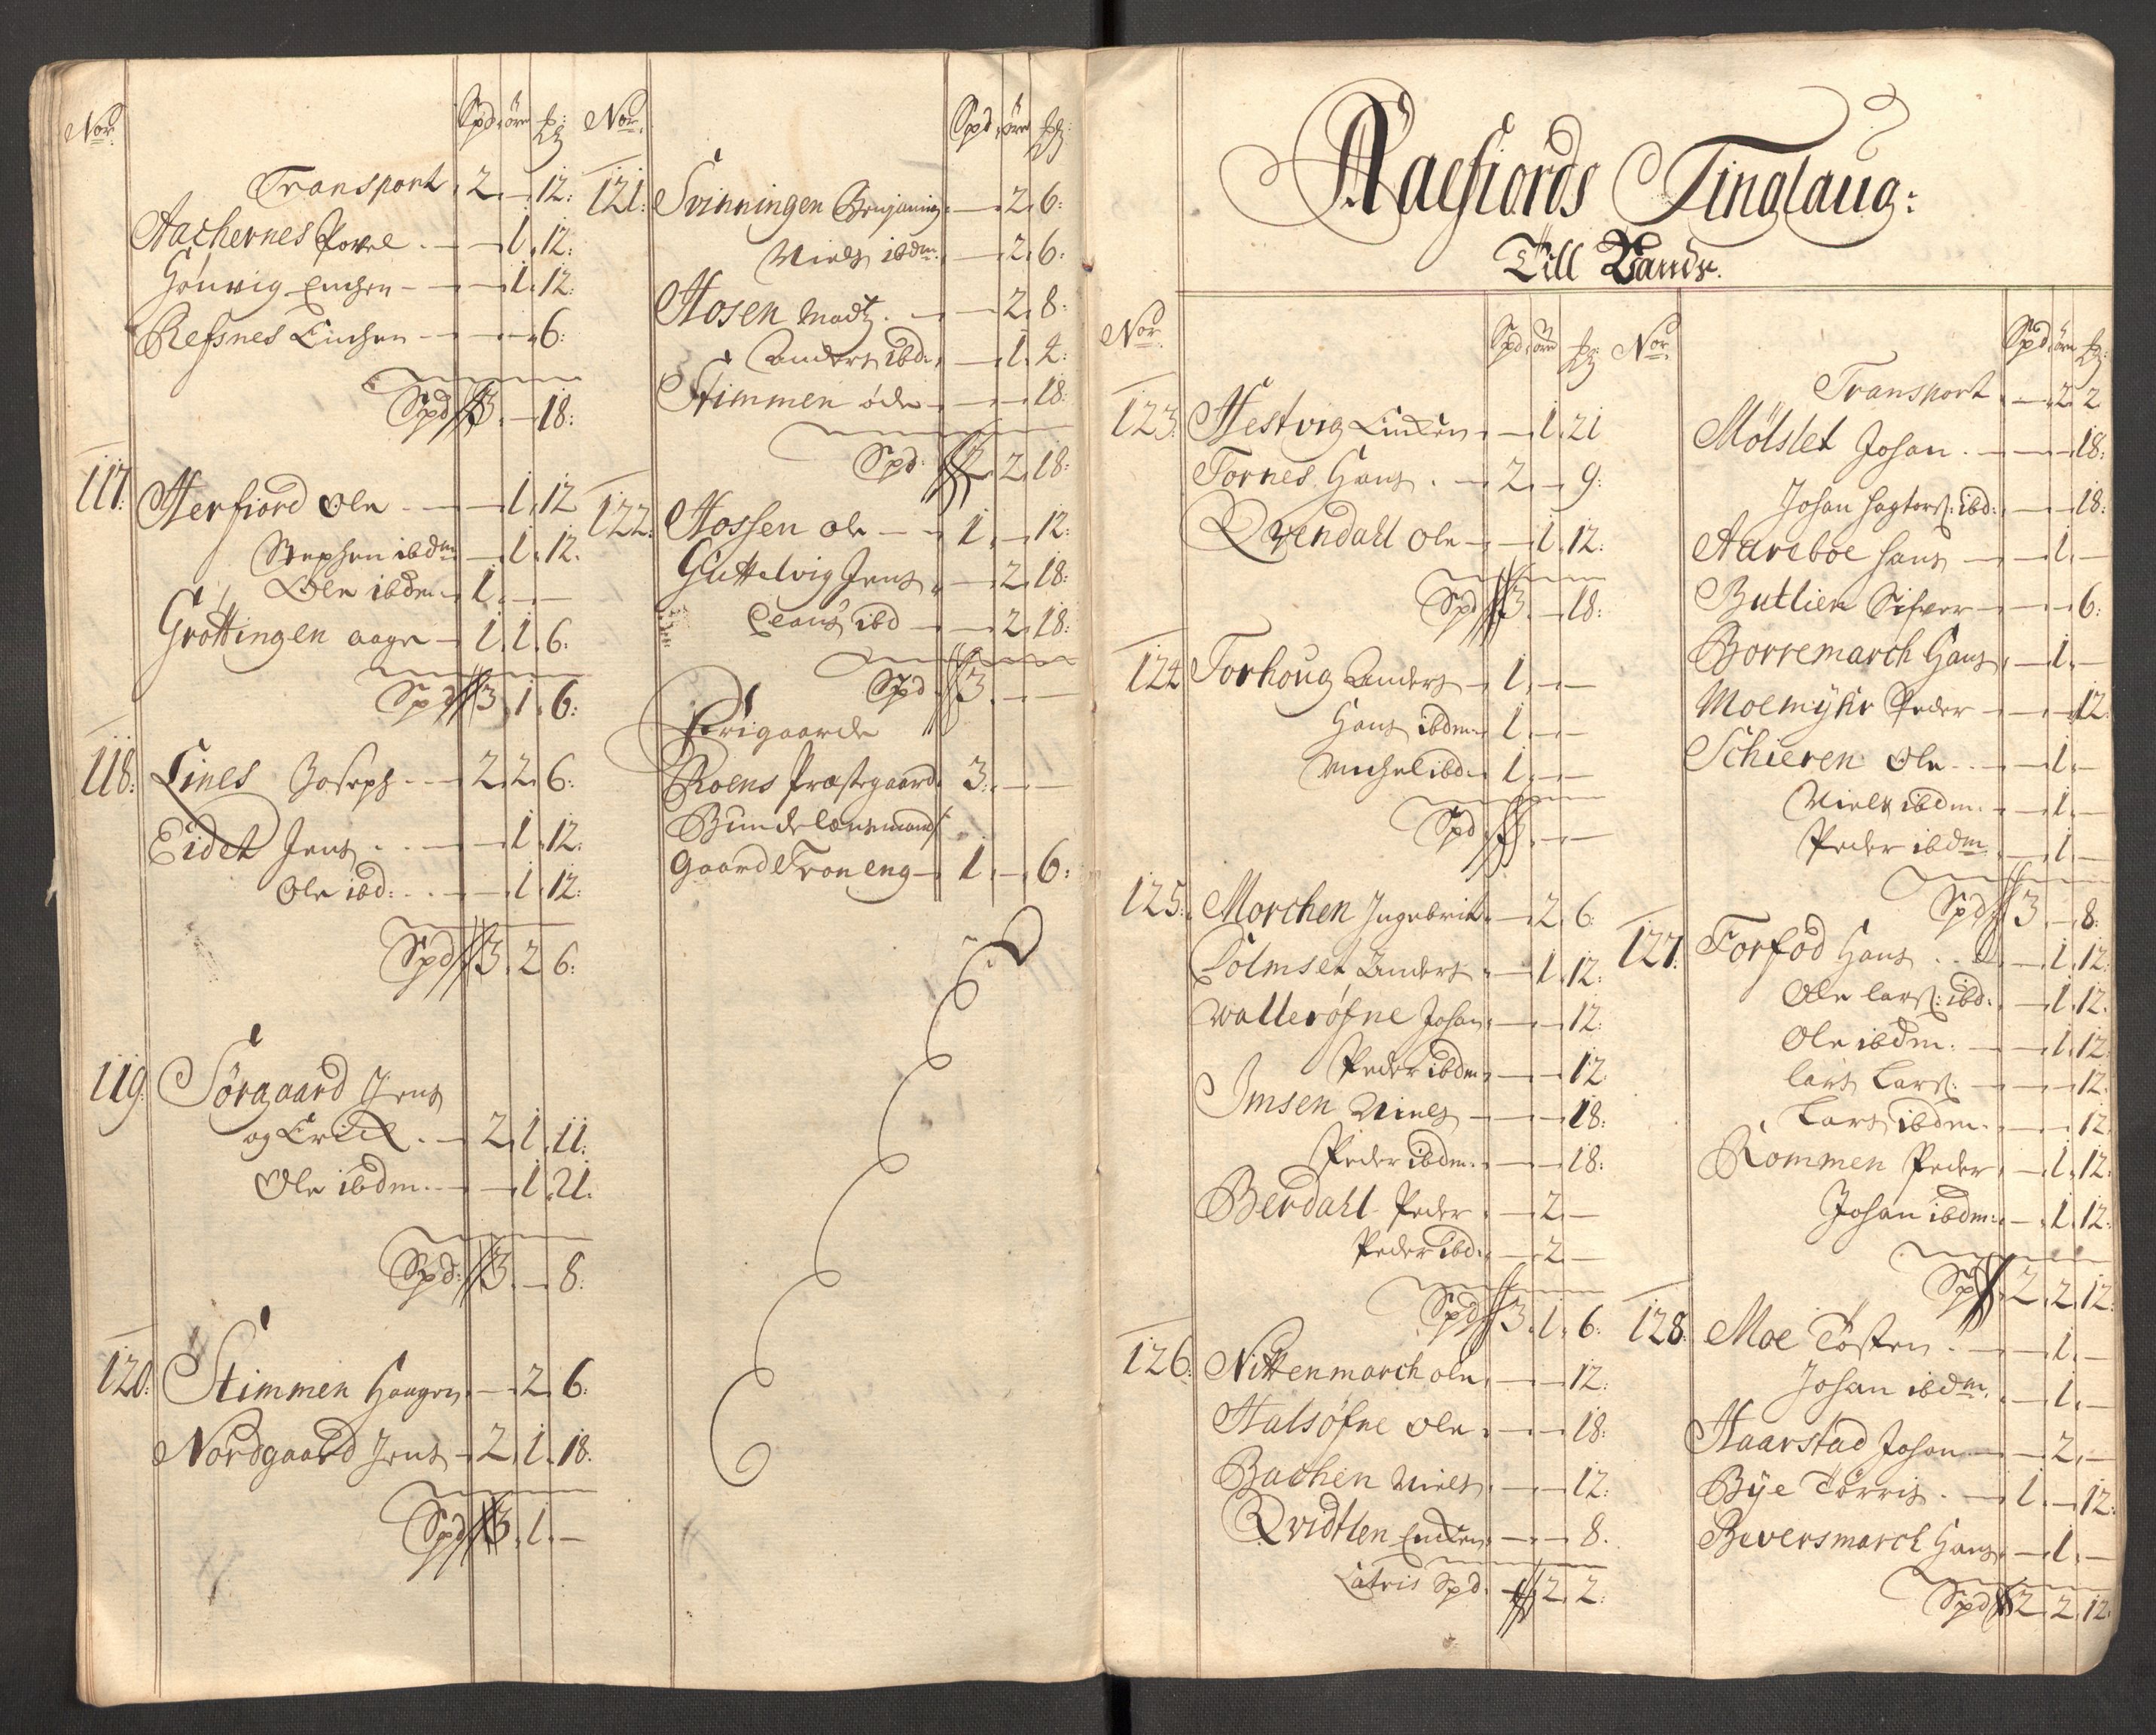 Nor. Spd örr ₰
Transport 2. — 12:
Aachernes Povel — 1. 12:
Gönvig Enchen — 1. 12:
Refsnes Enchen — — 6:
Spd 3. — 18:
117: Herfiord Ole — 1. 12
Stephen ibdm — 1. 12.
Ole ibdm 1. — —
Grøttingen aage 1. 1. 6.
Spd 3. 1. 6:
118: Lines Joseph 2. 2. 6:
Eidet Jens — 1. 12:
Ole ibd: — 1. 12:
Spd 3. 2 6:
119: Sörgaard Jens
og Erich 2. 1. 11:
Ole ibdm — 1. 21.
Spd: 3. — 8:
120: Stimmen Haagen — 2. 6:
Nordgaard Jens 2. 1. 18.
Spd 3. 1. —
Nor. Spd örr ₰
121: Svinningen Benjamin — 2. 6:
Niels ibdm — 2. 6:
Hosen Madtz — 2. 8:
Anders ibd: — 1. 4:
Stimmen øde — — 18:
Spd: 2. 2. 18:
122: Hossen Ole 1. — 12:
Guttelvig Jens — 2. 18:
Claus ibd — 2. 18:
Spd 3. — —
Frigaarde
Roens Præstegaard 3. — —
Bundelænsmands
gaard Froneng 1. — 6:
Aaefiords Tinglaug:
Till Lands.
Nor. Spd örr ₰
123: Hestvig Encken — 1. 21
Tornes Hans 2. — 9:
Qvendahl Ole — 1. 12:
Spd 3. — 18:
124 Torhoug Anders 1. — —
Hans ibdm 1. — —
Michel ibd: 1. — —
Spd 3. — —
125: Morchen Ingebrit — 2. 6:
Tolmset Anders — 1. 12:
Wallersöfne Johan — — 12:
Peder ibdm — — 12:
Imsen Niels — — 18:
Peder ibdm — — 18:
Berdahl Peder — 2. —
Peder ibd: — 2 —
Spd 3. 1. 6:
126: Nittenmarch Ole — — 12:
Halsöfne Ole — — 18:
Bachen Niels — — 12:
Qvidtlen Encken — — 8.
Latris Spd. — 2. 2:
Nor. Spd örr ₰
Transport — 2. 2.
Mölslet Johan — — 18:
Johan ibd: — — 18:
Aareboe Hans — 1. —
Butlien Sifver — — 6:
Borremarch Hans — 1. —
Moemyhr Peder — — 12.
Schieren Ole — 1. —
Niels ibdm — 1. —
Peder ibdm — 1. —
Spd 3. — 8:
127: Forfod Hans — 1. 12:
Ole Lars: ibd: — 1. 12.
Ole ibdm — 1. 12:
Lars Lars: — — 12:
Lars ibdm — — 12.
Rommen Peder — 1. 12:
Johan ibdm — 1. 12:
Spd 2. 2. 12:
128: Moe Tosten — 1. —
Johan ibdm — 1. —
Haarstad Johan — 2. —
Bye Torris 1. — 12:
Beversmarch Hans — 1. —
Spd 2. 2. 12: